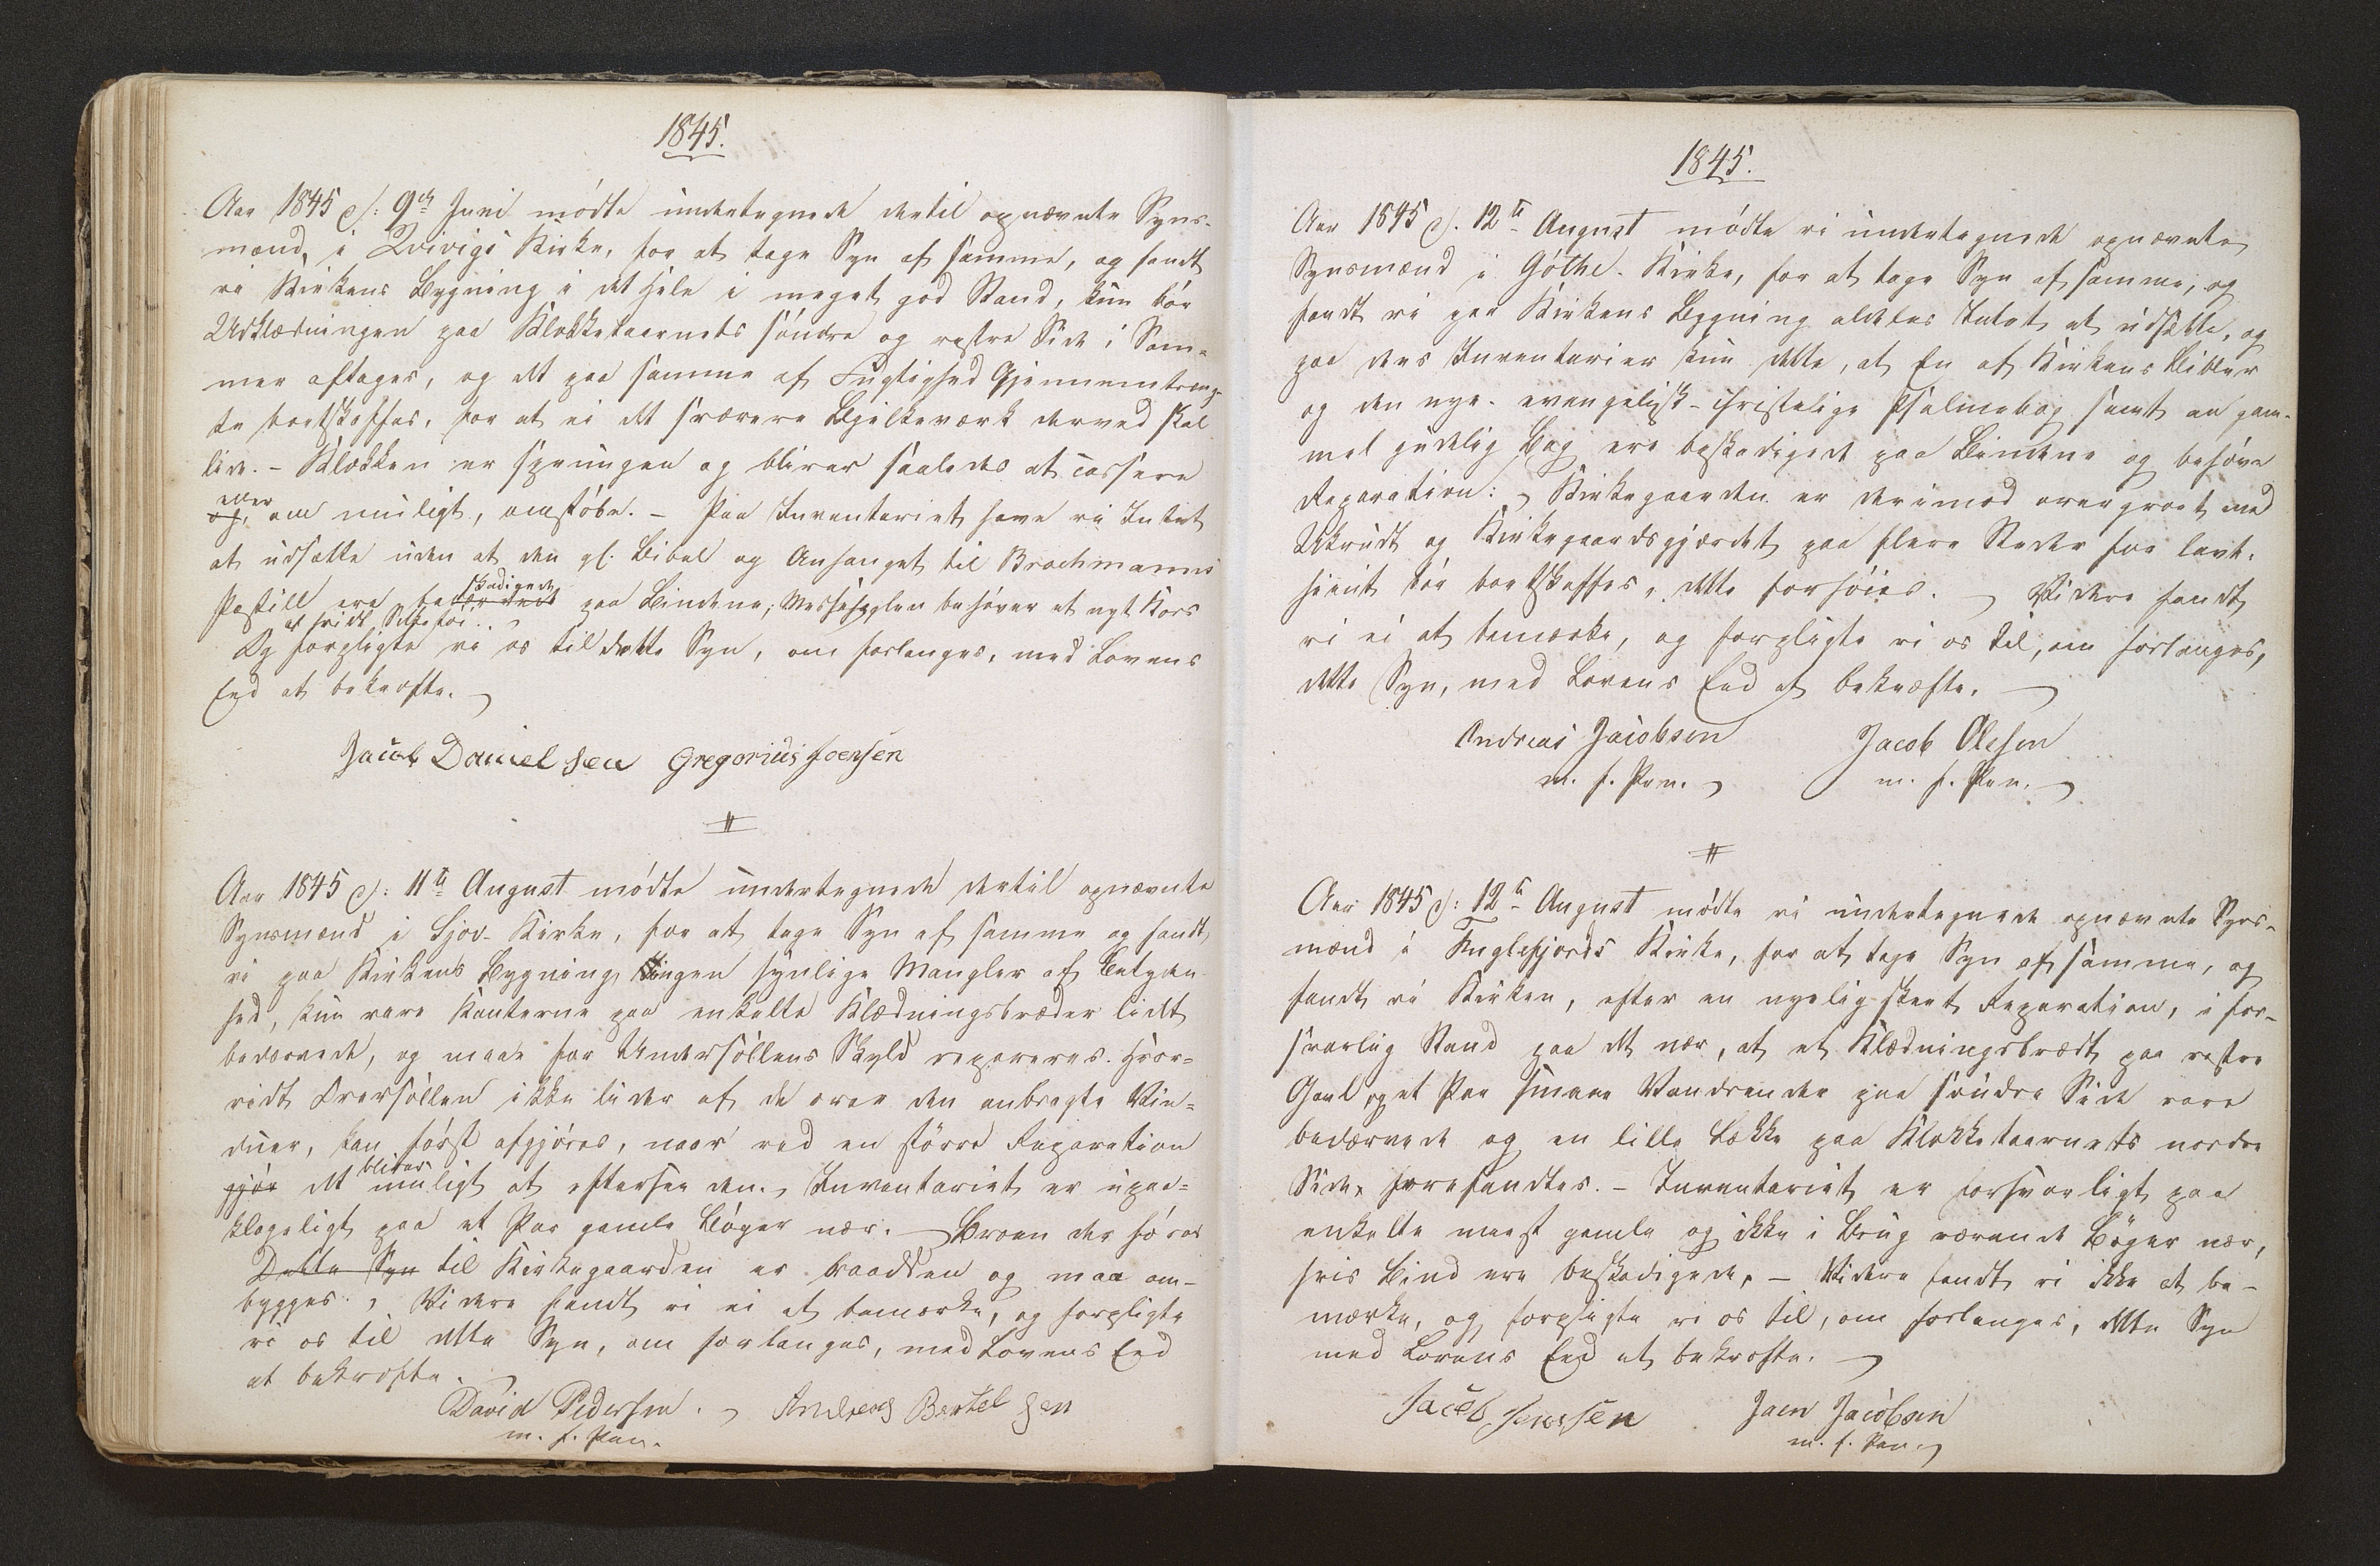 1845.
Aar 1845 d: 9de Juni mødte undertegnede dertil opnævnte Syns-
mænd, i Qvivigs Kirke, for at tage Syn af samme, og fandt
vi Kirkens Bygning i det Hele i meget god Stand, kun bør
Udklædningen paa Klokketaarnets søndre og vestre Side i Som-
mer aftages, og det paa samme af Fugtighed Gjennemtræng-
te bortskaffes, for at ei det sværere Bjelkeværk derved skal
lide. - Klokken er sprungen og bliver saaledes at cassere
og, eller om muligt, omstøbe. - Paa Inventariet have vi Intet
at udsætte uden at den gl. Bibel og Anhanget til Brochmanns
Postill ere beskadigede paa Bindene; Messehaglen behøver et nyt Kors
af hvidt Silketøi.
Og forpligte vi os til dette Syn, om forlanges, med Lovens
Eed at bekræfte.
Jacob Danielsen Gregorius Joensen
Aar 1845 d: 11te August mødte undertegnede dertil opnævnte
Synsmænd i Gjov-Kirke, for at tage Syn af samme og fandt
vi paa Kirkens Bygning ingen synlige Mangler af Betyden-
hed, kun vare Kanterne paa enkelte Klædningsbræder lidt
bedærvede, og maae for Undersøllens Skyld repareres. Hvor-
vidt Oversøllen ikke lider af de over den anbragte Vin-
duer, kan først afgjøres, naar ved en større Reparation
gjør det bliver muligt at eftersee den. Inventariet er upaa-
klageligt paa et Par gamle Bøger nær. - Broen der fører
Dette Syn til Kirkegaarden er raadden og maa om-
bygges. Videre fandt vi ei at bemærke, og forpligte
vi os til dette Syn, om forlanges, med Lovens Eed
at bekræfte.
David Pedersen. Andreas Bertelsen
m. f. Pen.
1845.
Aar 1845 d. 12te August mødte vi undertegnede opnævnte
Synsmænd i Gøthe-Kirke, for at tage Syn af samme, og
fandt vi paa Kirkens Bygning aldeles Intet at udsætte, og
paa dens Inventarier kun dette, at En af Kirkens Bibler
og den nye evangelisk-christelige Psalmebog samt en gam-
mel gudelig Bog ere beskadigede paa Bindene og behøve
Reparation: Kirkegaarden er derimod overgroet med
Ukrudt og Kirkegaardsgjærdet paa flere Steder for lavt.
hiint bør bortskaffes, dette forhøies. Videre fandt
vi ei at bemærke, og forpligte vi os til, om forlanges,
dette Syn, med Lovens Eed at bekræfte.
Andreas Jacobsen Jacob Olesen
m. f. Pen. m. f. Pen.
Aar 1845 d: 12te August mødte vi undertegnede opnævnte Syns-
mænd i Fuglefjords Kirke, for at tage Syn af samme, og
fandt vi Kirken, efter en nyelig skeet Reparation, i for-
svarlig Stand paa det nær, at et Klædningsbrædt paa vestre
Gavl og et Par smaae Vandrender paa søndre Side vare
bedærvede og en lille Lække paa Klokketaarnets nordre
Side, forefandtes. - Inventariet er forsvarligt paa
enkelte meest gamle og ikke i Brug værende Bøger nær,
hvis Bind ere beskadigede. - Videre fandt vi ikke at be-
mærke, og forpligte vi os til, om forlanges, dette Syn
med Lovens Eed at bekræfte.
Jacob Joensen Joen Jacobsen
m. f. Pen.